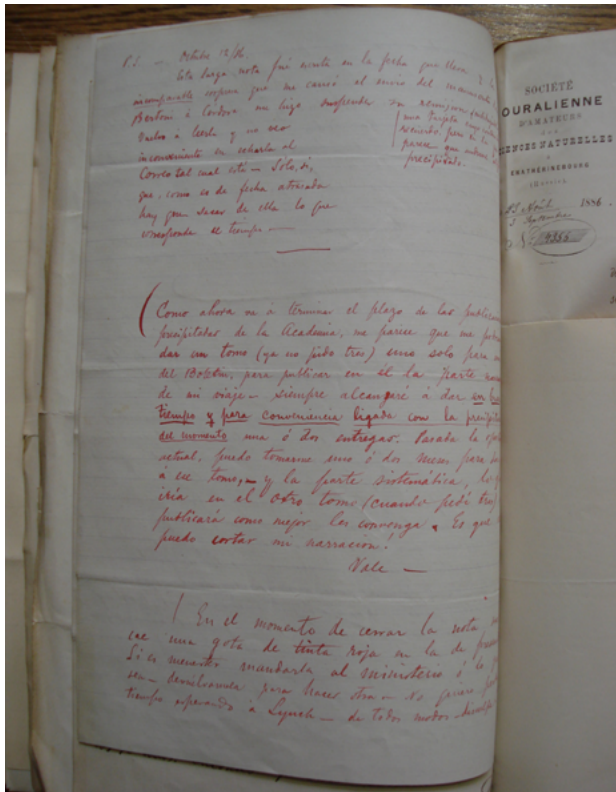 P.S. — Octubre 12/86.
Esta larga nota fué escrita en la fecha que lleva y la
incomparable sorpresa que me causó el envio del manuscrito
Bertoni á Cordova me hizo suspender su remision
Vuelvo á leerla y no veo
inconveniente en echarla al
Correo tal cual está — Sólo, si,
que, como es de fecha atrasada
hay que sacar de ella lo que
corresponda al tiempo —
una tarjeta
recuerdo, pero
parece que anduve
precipitado.
Como ahora va á terminar el plazo de las
precipitadas de la Academia, me parece que me
dar un tomo (ya no pido tres) uno solo para
del Boletin, para publicar en él la parte
de mi viaje — siempre alcanzaré á dar
tiempo y para conveniencia ligada con la
del momento una ó dos entregas. Pasada la
actual, puedo tomarme uno ó dos meses para
á ese tomo, — y la parte sistemática,
iria en el otro tomo (cuando pedí
publicará como mejor les convenga. Es que
puedo cortar mi narracion.
Vale —
En el momento de cerrar la nota
cae una gota de tinta roja en la de
Si es menester mandarla al ministerio ó
sea — devuélvamela para hacer otra — No quiero
tiempo esperando á Lynch — de todos modos
SOCIÉTÉ
OURALIENNE
D'AMATEURS
DES
SCIENCES NATURELLES
à
EKATHÉRINEBOURG
(RUSSIE).
Août 1886.
9355